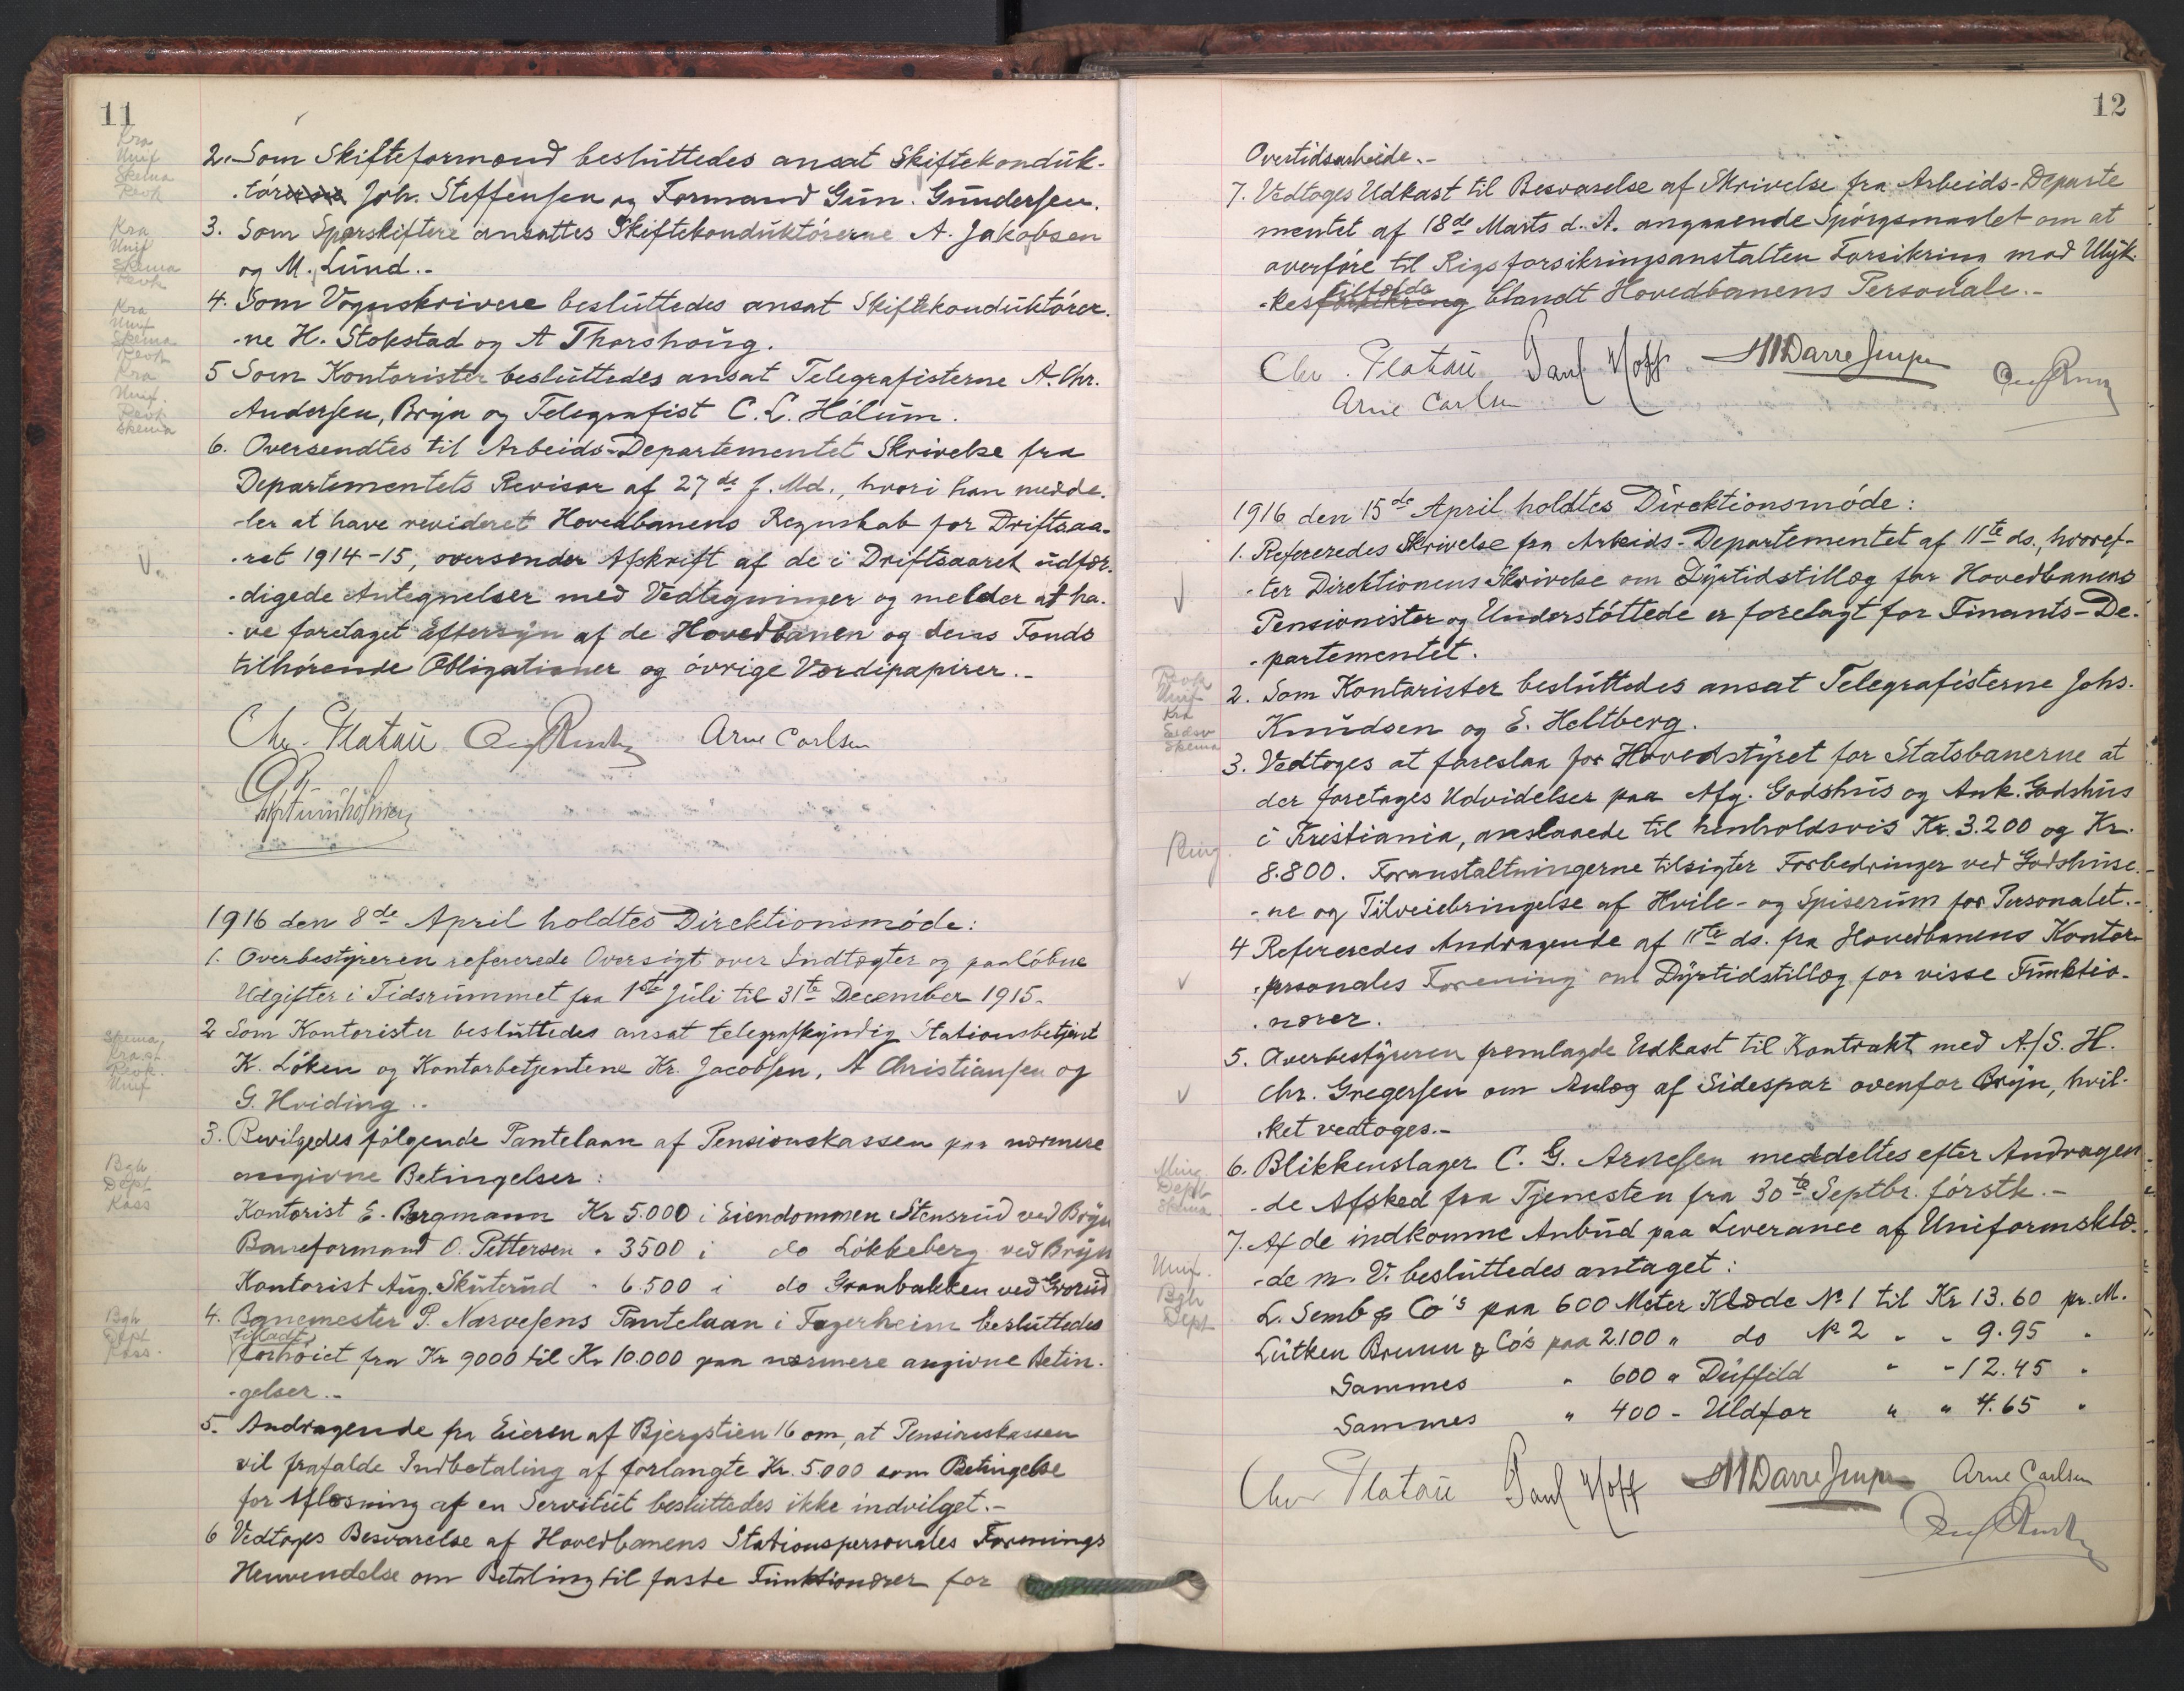 11
Kra
Unif
Skema
Revk
2. Som Skifteformænd besluttedes ansat Skiftekonduk-
tör Joh. Steffensen og Formand Gun. Gundersen.
Kra
Unif
Skema
Revk
3. Som Sporskiftere ansattes Skiftekonduktörerne A. Jakobsen
og M. Lund.-
Kra
Unif
Skema
Revk
4. Som Vognskrivere besluttedes ansat Skiftekonduktörer-
-ne H. Stokstad og A Thorshaug.
Kra
Unif.
Revk
Skema
5 Som Kontorister besluttedes ansat Telegrafisterne A. Chr.
Andersen, Bryn og Telegrafist C. L. Hólum.
6. Oversendtes til Arbeids-Departementet Skrivelse fra
Departementets Revisor af 27de f. Md., hvori han medde-
-ler at have revideret Hovedbanens Regnskab for Driftsaa-
-ret 1914-15, oversender Afskrift af de i Driftsaaret udfær-
V.
-digede Antegnelser med Vedtegninger og melder at ha-
-ve foretaget Eftersyn af de Hovedbanen og dens Fonds
tilhörende Obligationer og övrige Værdipapirer.-
Chr. Platou Arne Carlsen
1916 den 8de April holdtes Direktionsmöde:
1. Overbestyreren refererede Oversigt over Indtægter og paalöbne
Udgifter i Tidsrummet fra 1ste Juli til 31te December 1915.
Skema
Kra st
Revk.
Unif
2 Som Kontorister besluttedes ansat telegrafkyndig Stationsbetjent
K. Löken og Kontorbetjentene Kr. Jacobsen, A Christiansen og
G. Hviding..
3. Bevilgedes fölgende Pantelaan af Pensionskassen paa nærmere
Bgh
Dept
Kass
angivne Betingelser:
Kontorist E. Bergmann Kr 5.000 i Eiendommen Stensrud ved Bryn
Baneformand O. Pettersen " 3500 i do Lökkeberg ved Bryn
Kontorist Aug. Skuterud " 6.500 i do Granbakken ved Grorud
Bgh
Dept
Kass.
4. Banemester P. Narvesens Pantelaan i Fagerheim besluttedes
tilladt
forhöiet fra Kr 9000 til Kr 10.000 paa nærmere angivne Betin-
-gelser.-
5. Andragende fra Eieren af Bjergstien 16 om, at Pensionskassen
vil frafalde Indbetaling af forlangte Kr. 5.000 som Betingelse
for Aflösning af en Servitut besluttedes ikke indvilget.-
6 Vedtoges Besvarelse af Hovedbanens Stationspersonales Forenings
Henvendelse om Betaling til faste Funktionærer for
12
Overtidsarbeide.-
7. Vedtoges Udkast til Besvarelse af Skrivelse fra Arbeids-Departe
mentet af 18de Marts d. A. angaaende Spörgsmaalet om at
overföre til Rigsforsikringsanstalten Forsikring mod Ulyk-
tilfælde
-kesforsikring blandt Hovedbanens Personale.-
Chr. Platou Paul Hoff
Arne Carlsen
1916 den 15de April holdtes Direktionsmöde:
1. Refereredes Skrivelse fra Arbeids-Departementet af 11te ds., hvoref-
V
-ter Direktionens Skrivelse om Dyrtidstillæg for Hovedbanens
Pensionister og Understöttede er forelagt for Finants-De-
-partementet.
Revk
Unif
Kra
Eidsv
Skema
2. Som Kontorister besluttedes ansat Telegrafisterne Johs.
Knudsen og E. Heltberg.
3. Vedtoges at foreslaa for Hovedstyret for Statsbanerne at
der foretages Udvidelser paa Afg. Godshus og Ank. Godshus
i Kristiania, anslaaede til henholdsvis Kr. 3.200 og Kr.
8.800. Foranstaltningerne tilsigter Forbedringer ved Godshuse-
-ne og Tilveiebringelse af Hvile- og Spiserum for Personalet.-
4 Refereredes Andragende af 11te ds. fra Hovedbanens Kontor-
V
-personales Forening om Dyrtidstillæg for visse Funktio-
-nærer.
5. Overbestyreren fremlagde Udkast til Kontrakt med A/S. H.
V
Chr. Gregersen om Anlæg af Sidespor ovenfor Bryn, hvil-
-ket vedtoges.-
Dept
Skema
6. Blikkenslager C. G. Arnesen meddeltes efter Andragen-
-de Afsked fra Tjenesten fra 30te Septbr. förstk.-
7. Af de indkomne Anbud paa Leverance af Uniformsklæ-
Unif.
Bgh
Dept
-de m. V. besluttedes antaget:
L. Semb & Co's paa 600 Meter Klæde No 1 til Kr 13.60 pr. M.
Lütken Bruun & Co's paa 2.100 " do No 2 " " 9.95 "
Sammes " 600 " Düffild " " 12.45 "
Sammes " 400 - Uldfor " " 4.65 "
Chr Platou Paul Hoff Arne Carlsen